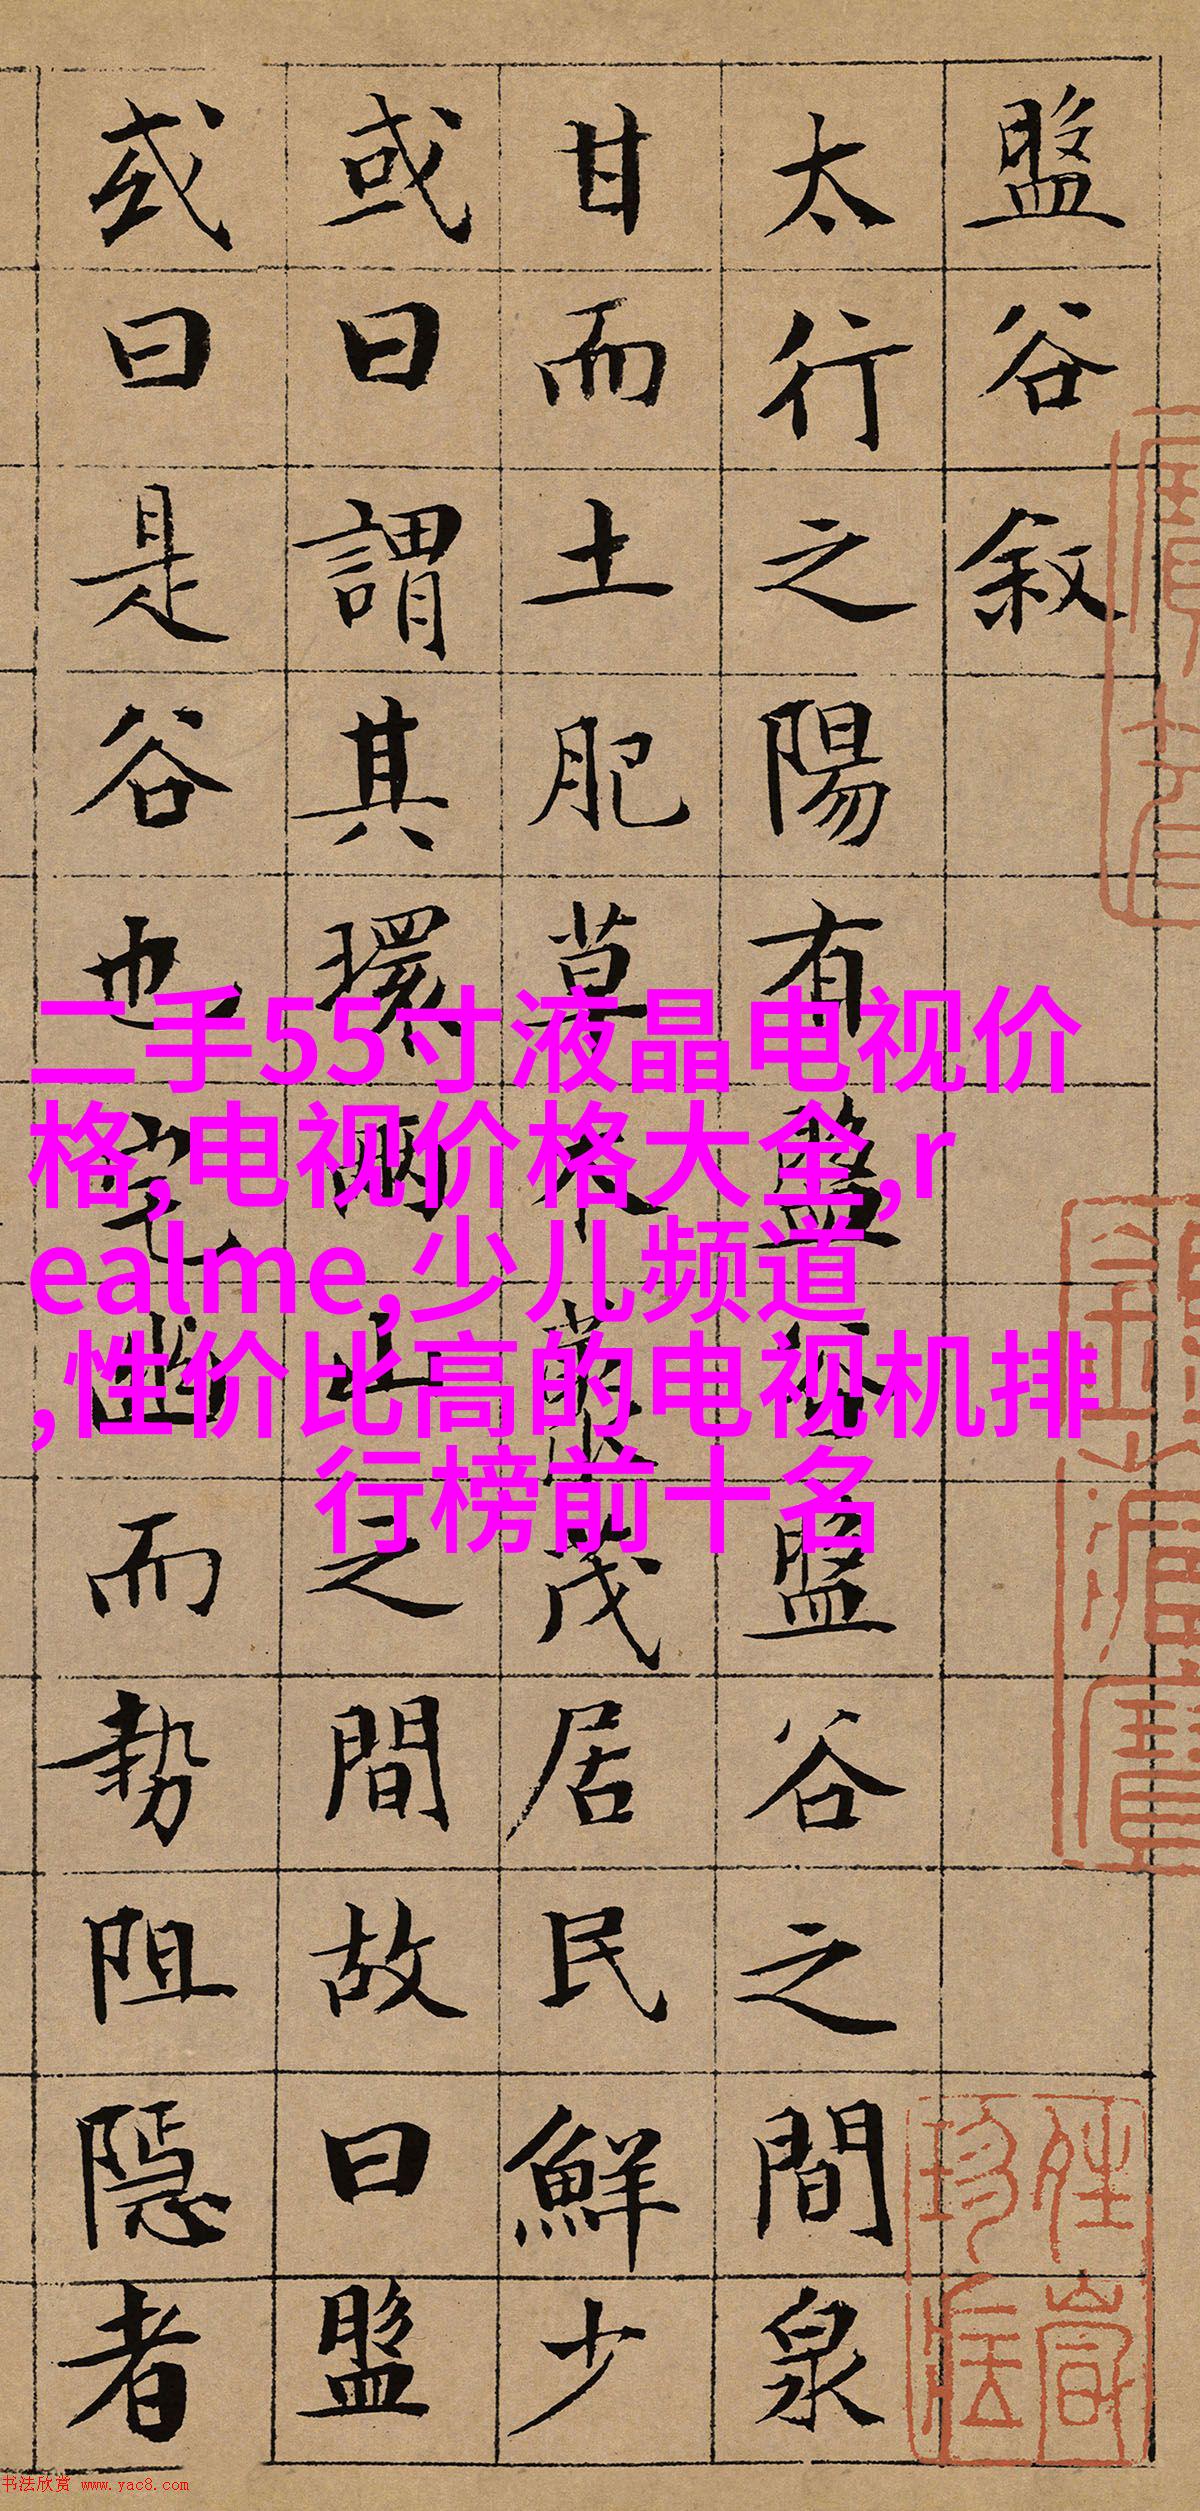 盤谷叙
太行之陽有盤谷盤谷之間泉
甘而土肥草木藂茂居民鮮少
或曰謂其環兩山之間故曰盤
或曰是谷也宅幽而勢阻隱者
二手55寸液晶电视价
格,电视价格大全,r
ealme,少儿频道
,性价比高的电视机排
行榜前十名
书法欣赏 www.yac8.com